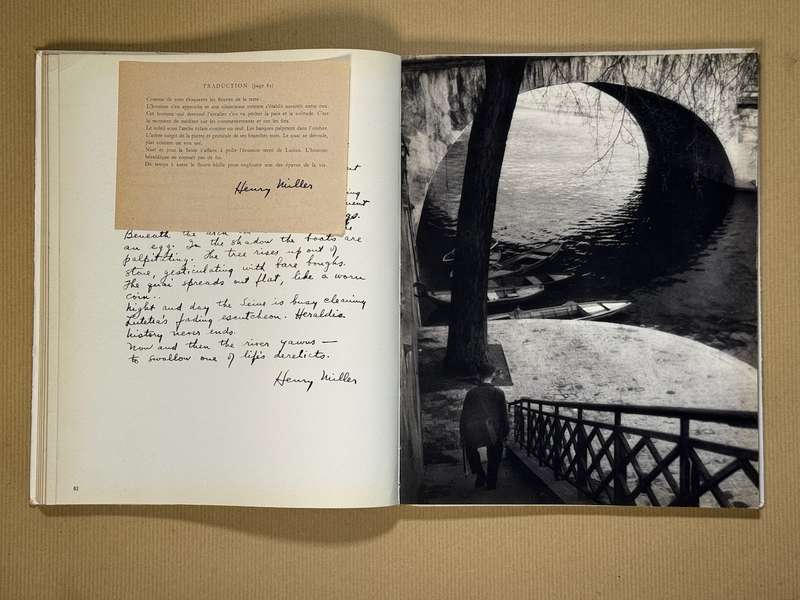 TRADUCTION (page 82)
Comme de vous éloquents les fleuves de la terre.
L'homme s'en approche et une silencieuse entente s'établit aussitôt entre eux.
Cet homme qui descend l'escalier s'en va pêcher la paix et la solitude. C'est
le moment de méditer sur les commencements et sur les fins.
Le soleil sous l'arche éclate comme un œuf. Les barques palpitent dans l'ombre.
L'arbre surgit de la pierre et gesticule de ses branches nues. Le quai se déroule,
plat comme un sou usé.
Nuit et jour la Seine s'affaire à polir l'écusson terni de Lutèce. L'histoire
héraldique ne connaît pas de fin.
De temps à autre le fleuve bâille pour engloutir une des épaves de la vie.
Henry Miller
Beneath the arch
an egg. In the shadow the boats are
palpitating. The tree rises up out of
stone, gesticulating with bare boughs.
The quai spreads out flat, like a worn
coin.
Night and day the Seine is busy cleaning
Lutetia's fading escutcheon. Heraldic
history never ends.
Now and then the river yawns —
to swallow one of life's derelicts.
Henry Miller
82